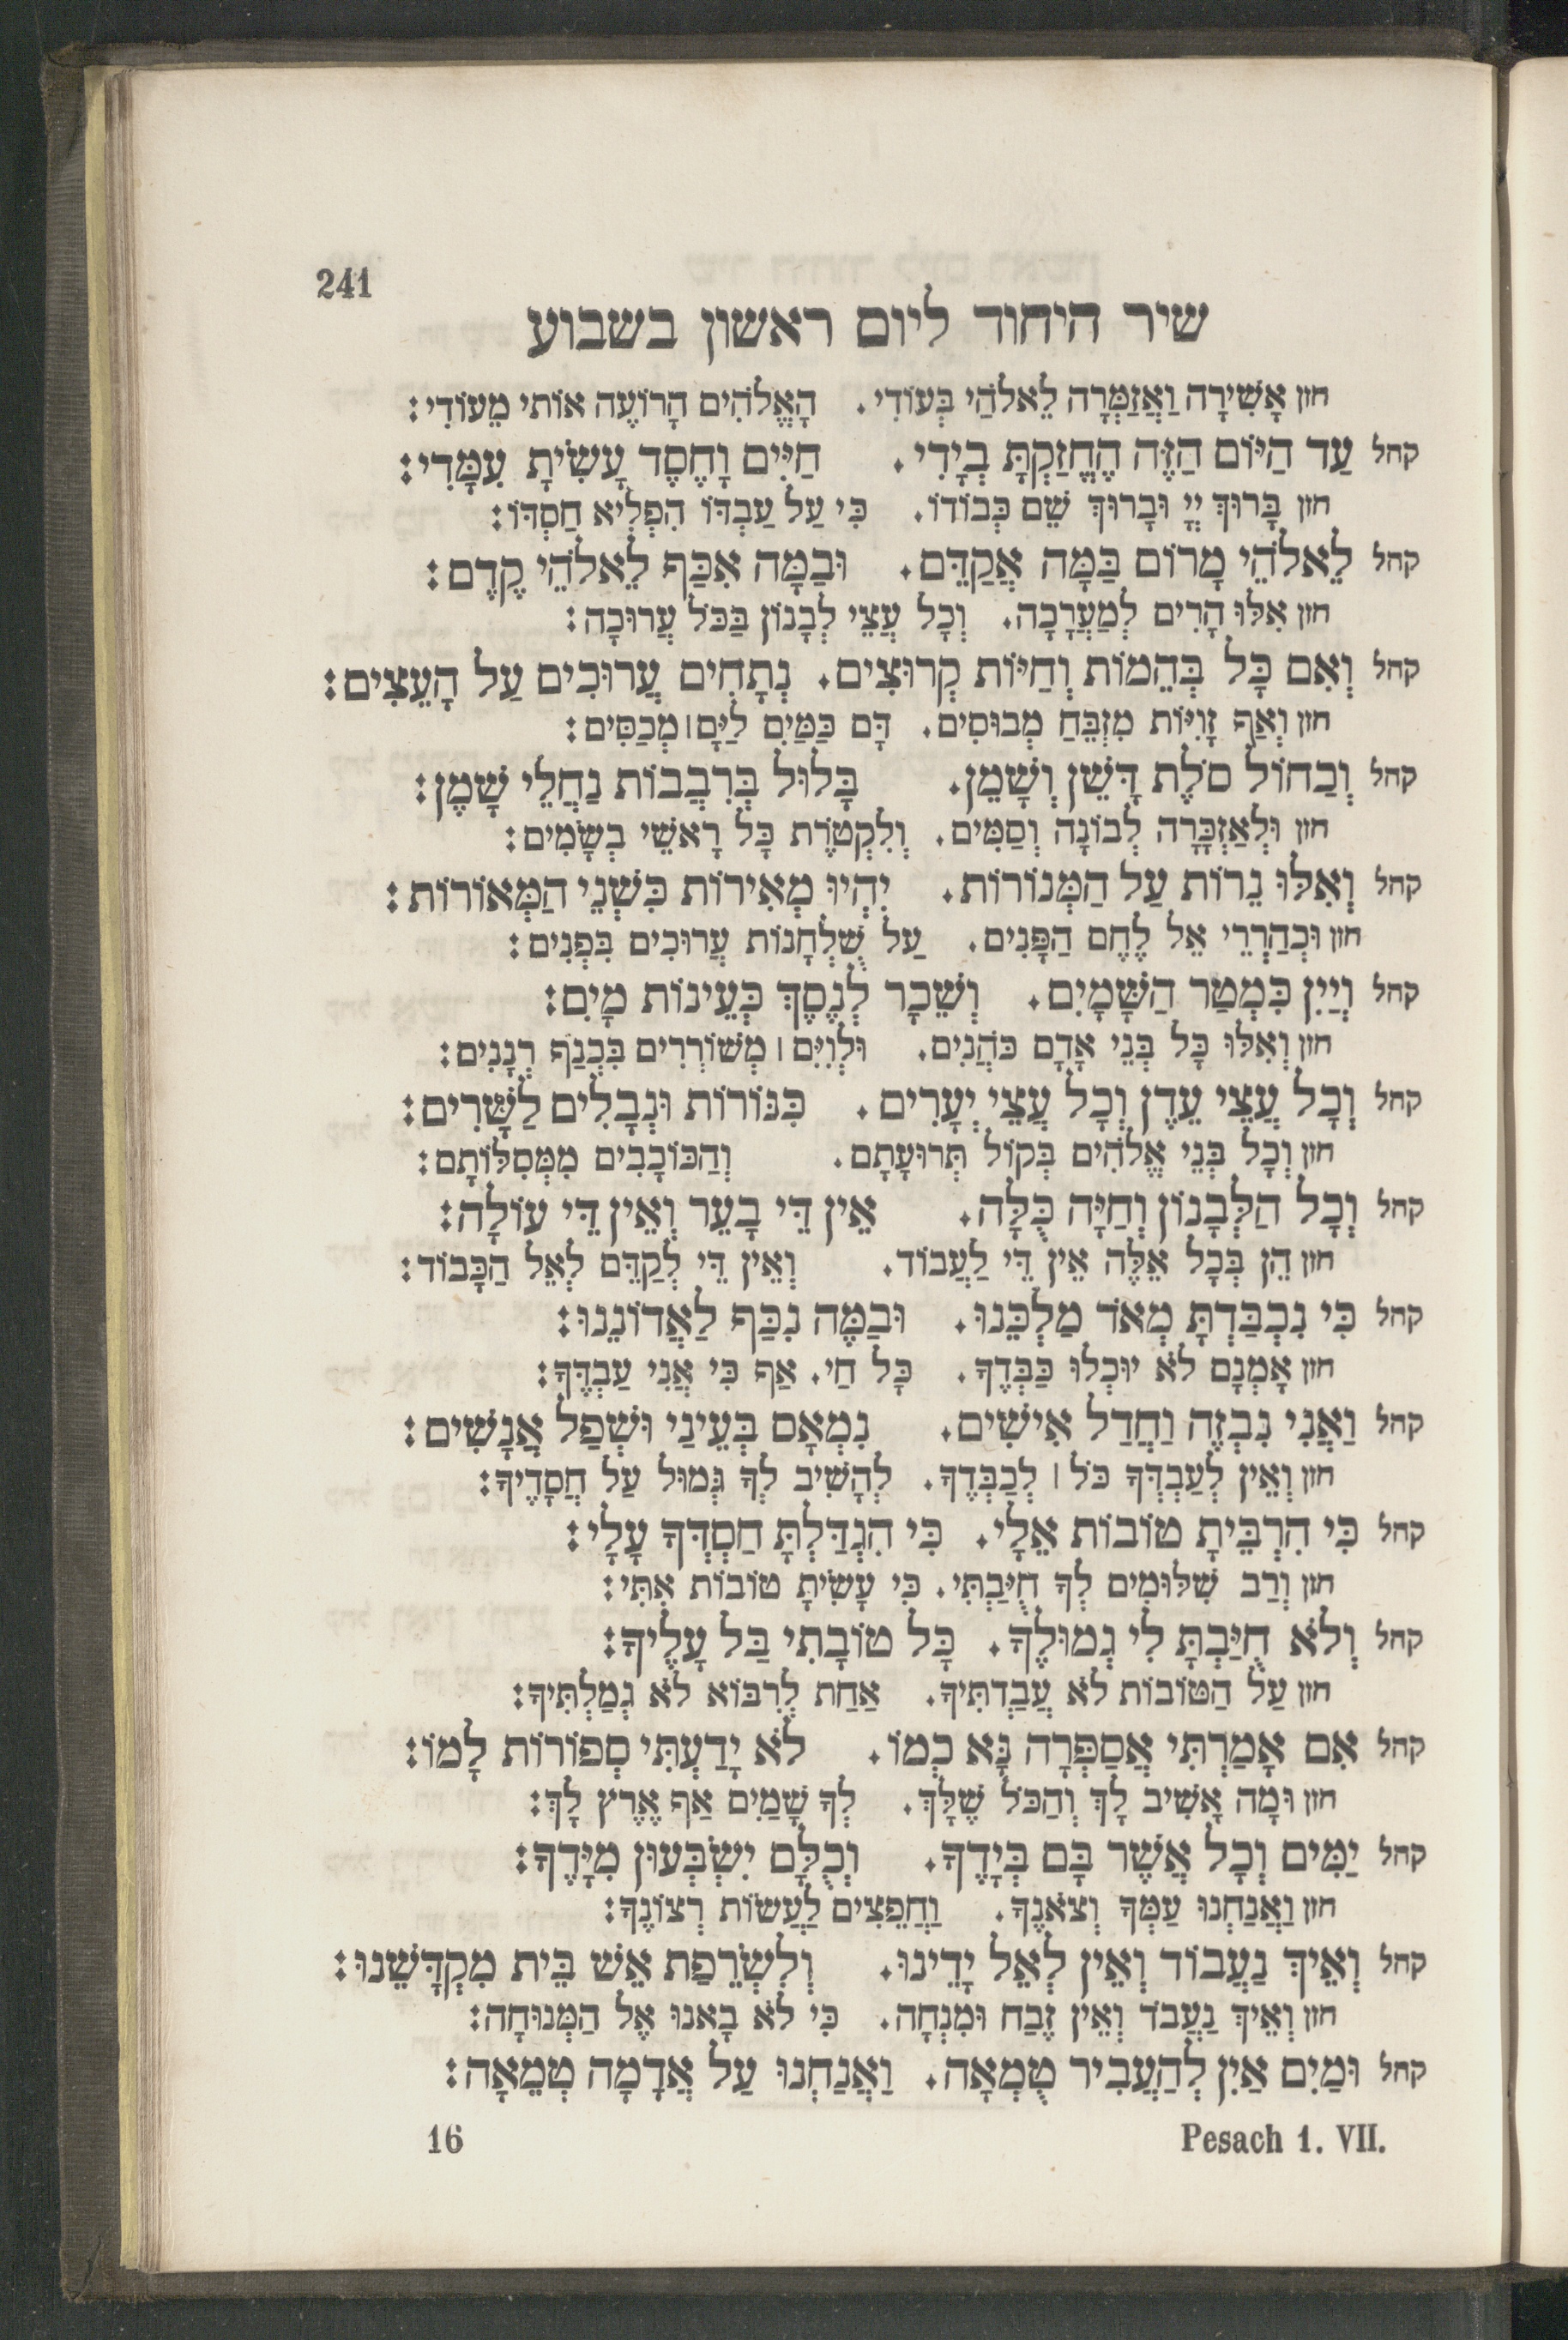 241
שיר היחוד ליום ראשון בשבוע
חזן אָשִׁירָה וַאֲזַמְּרָה לֵאלֹהַי בְּעוֹדִי. הָאֱלֹהִים הָרוֹעֶה אוֹתִי מֵעוֹדִי:
קהל עַד הַיּוֹם הַזֶּה הֶחֱזַקְתָּ בְיָדִי. חַיִּים וָחֶסֶד עָשִׂיתָ עִמָּדִי:
חזן בָּרוּךְ יְיָ וּבָרוּךְ שֵׁם כְּבוֹדוֹ. כִּי עַל עַבְדּוֹ הִפְלִיא חַסְדּוֹ:
קהל לֵאלֹהֵי מָרוֹם בַּמָּה אֲקַדֵּם. וּבַמָּה אִכַּף לֵאלֹהֵי קֶדֶם:
חזן אִלּוּ הָרִים לְמַעֲרָכָה. וְכָל עֲצֵי לְבָנוֹן בַּכֹּל עֲרוּכָה:
קהל וְאִם כָּל בְּהֵמוֹת וְחַיּוֹת קְרוּצִים. נְתָחִים עֲרוּכִים עַל הָעֵצִים:
חזן וְאַף זָוִיּוֹת מִזְבֵּחַ מְבוּסִים. דָּם כַּמַּיִם לַיָּם׀ מְכַסִּים:
קהל וְכַחוֹל סֹלֶת דָּשֵׁן וְשָׁמֵן. בָּלוּל בְּרִבֲבוֹת נַחֲלֵי שָׁמֶן:
חזן וּלְאַזְכָּרָה לְבוֹנָה וְסַמִּים. וְלִקְטוֹרֶת כָּל רָאשֵׁי בְשָׂמִים:
קהל וְאִלּוּ נֵרוֹת עַל הַמְּנוֹרוֹת. יִהְיוּ מְאִירוֹת כִּשְׁנֵי הַמְּאוֹרוֹת:
חזן וּכְהַרְרֵי אֵל לֶחֶם הַפָּנִים. עַל שֻׁלְחָנוֹת עֲרוּכִים בִּפְנִים:
קהל וְיַיִן כִּמְטַר הַשָּׁמָיִם. וְשֵׁכָר לְנֶסֶךְ כְּעֵינוֹת מָיִם:
חזן וְאִלּוּ כָּל בְּנֵי אָדָם כֹּהֲנִים. וּלְוִיִּם ׀ מְשׁוֹרְרִים בִּכְנַף רְנָנִים:
קהל וְכָל עֲצֵי עֵדֶן וְכָל עֲצֵי יְעָרִים. כִּנּוֹרוֹת וּנְבָלִים לַשָּׁרִים:
חזן וְכָל בְּנֵי אֱלֹהִים בְּקוֹל תְּרוּעָתָם. וְהַכּוֹכָבִים מִמְּסִלּוֹתָם:
קהל וְכָל הַלְּבָנוֹן וְחַיָּה כֻּלָּה. אֵין דֵּי בָעֵר וְאֵין דֵּי עוֹלָה:
חזן הֵן בְּכָל אֵלֶּה אֵין דֵּי לַעֲבוֹד. וְאֵין דֵּי לְקַדֵּם לְאֵל הַכָּבוֹד:
קהל כִּי נִכְבַּדְתָּ מְאֹד מַלְכֵּנוּ. וּבַמֶּה נִכַּף לַאֲדוֹנֵנוּ:
חזן אָמְנָם לֹא יוּכְלוּ כַּבְּדֶךָ. כָּל חַי. אַף כִּי אֲנִי עַבְדֶּךָ:
קהל וַאֲנִי נִבְזֶה וַחֲדַל אִישִׁים. נִמְאָס בְּעֵינַי וּשְׁפַל אֲנָשִׁים:
חזן וְאֵין לְעַבְדְּךָ כֹּל ׀ לְכַבְּדֶךָ. לְהָשִׁיב לְךָ גְּמוּל עַל חֲסָדֶיךָ:
קהל כִּי הִרְבֵּיתָ טוֹבוֹת אֵלָי. כִּי הִגְדַּלְתָּ חַסְדְּךָ עָלָי:
חזן וְרַב שִׁלּוּמִים לְךָ חֻיַּבְתִּי. כִּי עָשִׂיתָ טוֹבוֹת אִתִּי:
קהל וְלֹא חֻיַּבְתָּ לִי גְמוּלֶךָ. כָּל טוֹבָתִי בַּל עָלֶיךָ:
חזן עַל הַטּוֹבוֹת לֹא עֲבַדְתִּיךָ. אַחַת לְרִבּוֹא לֹא גְמַלְתִּיךָ:
קהל אִם אָמַרְתִּי אֲסַפְּרָה נָּא כְמוֹ. לֹא יָדַעְתִּי סְפוֹרוֹת לָמוֹ:
חזן וּמָה אָשִׁיב לָךְ וְהַכֹּל שֶׁלָּךְ. לְךָ שָׁמַיִם אַף אֶרֶץ לָךְ:
קהל יַמִּים וְכָל אֲשֶׁר בָּם בְּיָדֶךָ. וְכֻלָּם יִשְׂבְּעוּן מִיָּדֶךָ:
חזן וַאֲנַחְנוּ עַמְּךָ וְצֹאנֶךָ. וַחֲפֵצִים לַעֲשׂוֹת רְצוֹנֶךָ:
קהל וְאֵיךְ נַעֲבוֹד וְאֵין לְאֵל יָדֵינוּ. וְלִשְׂרֵפַת אֵשׁ בֵּית מִקְדָּשֵׁנוּ:
חזן וְאֵיךְ נַעֲבֹד וְאֵין זֶבַח וּמִנְחָה. כִּי לֹא בָאנוּ אֶל הַמְּנוּחָה:
קהל וּמַיִם אַיִן לְהַעֲבִיר טֻמְאָה. וַאֲנַחְנוּ עַל אֲדָמָה טְמֵאָה:
Pesach 1. VII.
16